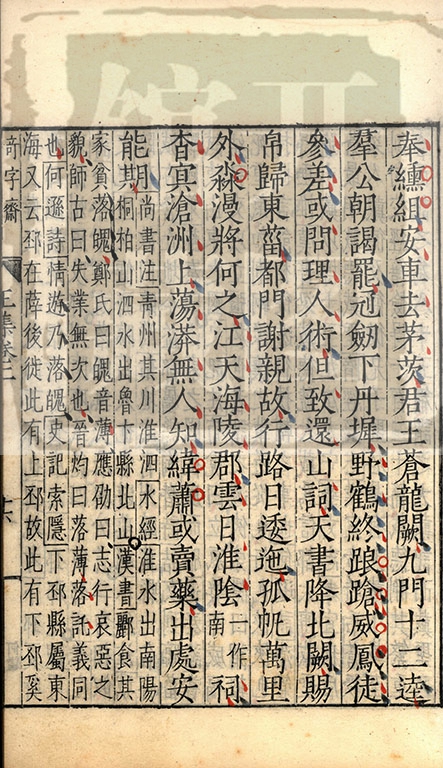 奉纁組安車去茅茨君王蒼龍闕九門十二逵
羣公朝謁罷冠劒下丹墀野鶴終踉蹌威鳳徒
參差或問理人術但致還山詞天書降北闕賜
帛歸東菑都門謝親故行路日逶迤孤帆萬里
外淼漫將何之江天海陵郡雲日淮陰一作南祠
杳冥滄洲上蕩漭無人知緯蕭或賣藥出處安
能期尚書注青州其川淮泗水經淮水出南陽
桐柏山泗水出魯卞縣北山漢書酈食其
家貧落魄鄭氏曰魄音薄應劭曰志行衰惡之
貌師古曰失業無次也晉灼曰落薄落託義同
也何遜詩情遊乃落魄史記索隱下邳縣屬東
海又云邳在薛後徙此有上邳故此有下邳奚
奇字齋